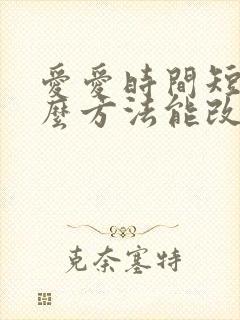 愛愛時間短
麼方法能改
克奈塞特